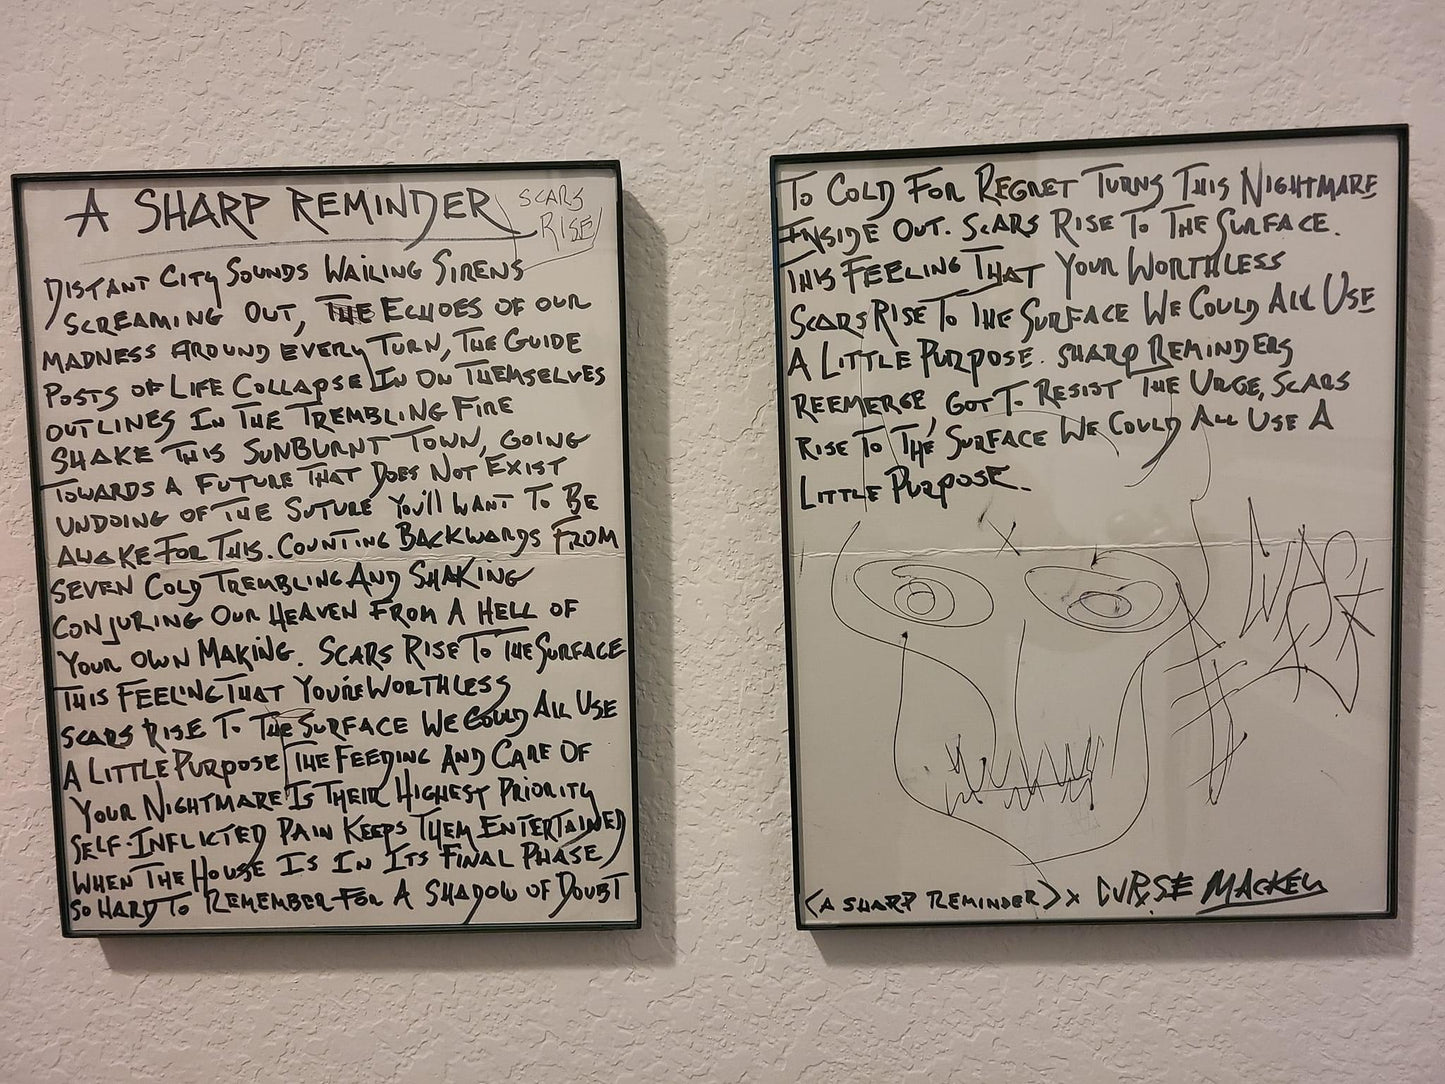 A SHARP REMINDER
SCARS
RISE
DISTANT CITY SOUNDS WAILING SIRENS
SCREAMING OUT, THE ECHOES OF OUR
MADNESS AROUND EVERY TURN, THE GUIDE
POSTS OF LIFE COLLAPSE IN ON THEMSELVES
OUTLINES IN THE TREMBLING FIRE
SHAKE THIS SUNBURNT TOWN, GOING
TOWARDS A FUTURE THAT DOES NOT EXIST
UNDOING OF THE SUTURE YOU'LL WANT TO BE
AWAKE FOR THIS. COUNTING BACKWARDS FROM
SEVEN COLD TREMBLING AND SHAKING
CONJURING OUR HEAVEN FROM A HELL OF
YOUR OWN MAKING. SCARS RISE TO THE SURFACE
THIS FEELING THAT YOU'RE WORTHLESS
SCARS RISE TO THE SURFACE WE COULD ALL USE
A LITTLE PURPOSE THE FEEDING AND CARE OF
YOUR NIGHTMARE IS THEIR HIGHEST PRIORITY
SELF-INFLICTED PAIN KEEPS THEM ENTERTAINED
WHEN THE HOUSE IS IN ITS FINAL PHASE
SO HARD TO REMEMBER FOR A SHADOW OF DOUBT
TO COLD FOR REGRET TURNS THIS NIGHTMARE
INSIDE OUT. SCARS RISE TO THE SURFACE.
THIS FEELING THAT YOUR WORTHLESS
SCARS RISE TO THE SURFACE WE COULD ALL USE
A LITTLE PURPOSE. SHARP REMINDERS
REEMERGE, GOT TO RESIST THE URGE, SCARS
RISE TO THE SURFACE WE COULD ALL USE A
LITTLE PURPOSE.
<A SHARP REMINDER> x CURSE MACKEY